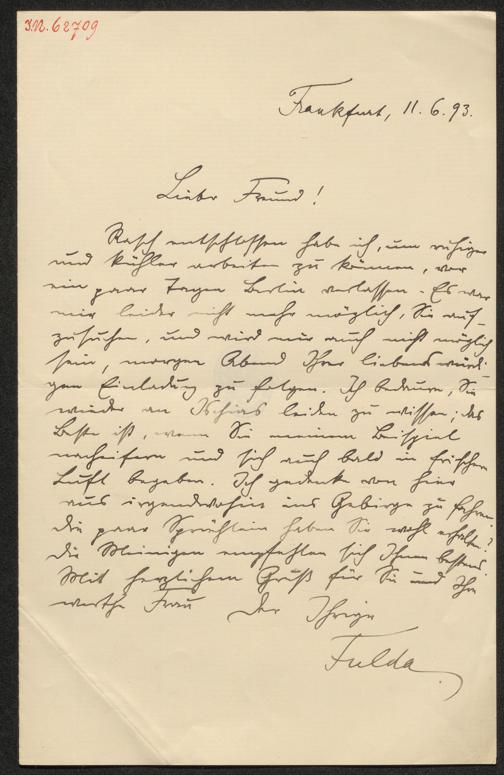 I.N. 62709
Frankfurt, 11. 6. 93.
Lieber Freund!
Rasch entschlossen habe ich, um ruhiger
und kühler arbeiten zu können, vor
ein paar Tagen Berlin verlassen. Es war
mir leider nicht mehr möglich, Sie auf-
zusuchen, und wird mir auch nicht möglich
sein, morgen Abend Ihrer liebenswürdi-
gen Einladung zu folgen. Ich bedaure, Sie
wieder an Ischias leiden zu wissen; das
Beste ist, wenn Sie meinem Beispiel
nacheifern und sich auch bald in frische
Luft begeben. Ich gedenke von hier
aus irgendwohin ins Gebirge zu fahren.
Die paar Sprüchlein haben Sie wohl erhalten?
Die Meinigen empfehlen sich Ihnen bestens.
Mit herzlichem Gruß für Sie und Ihre
werthe Frau der Ihrige
Fulda.